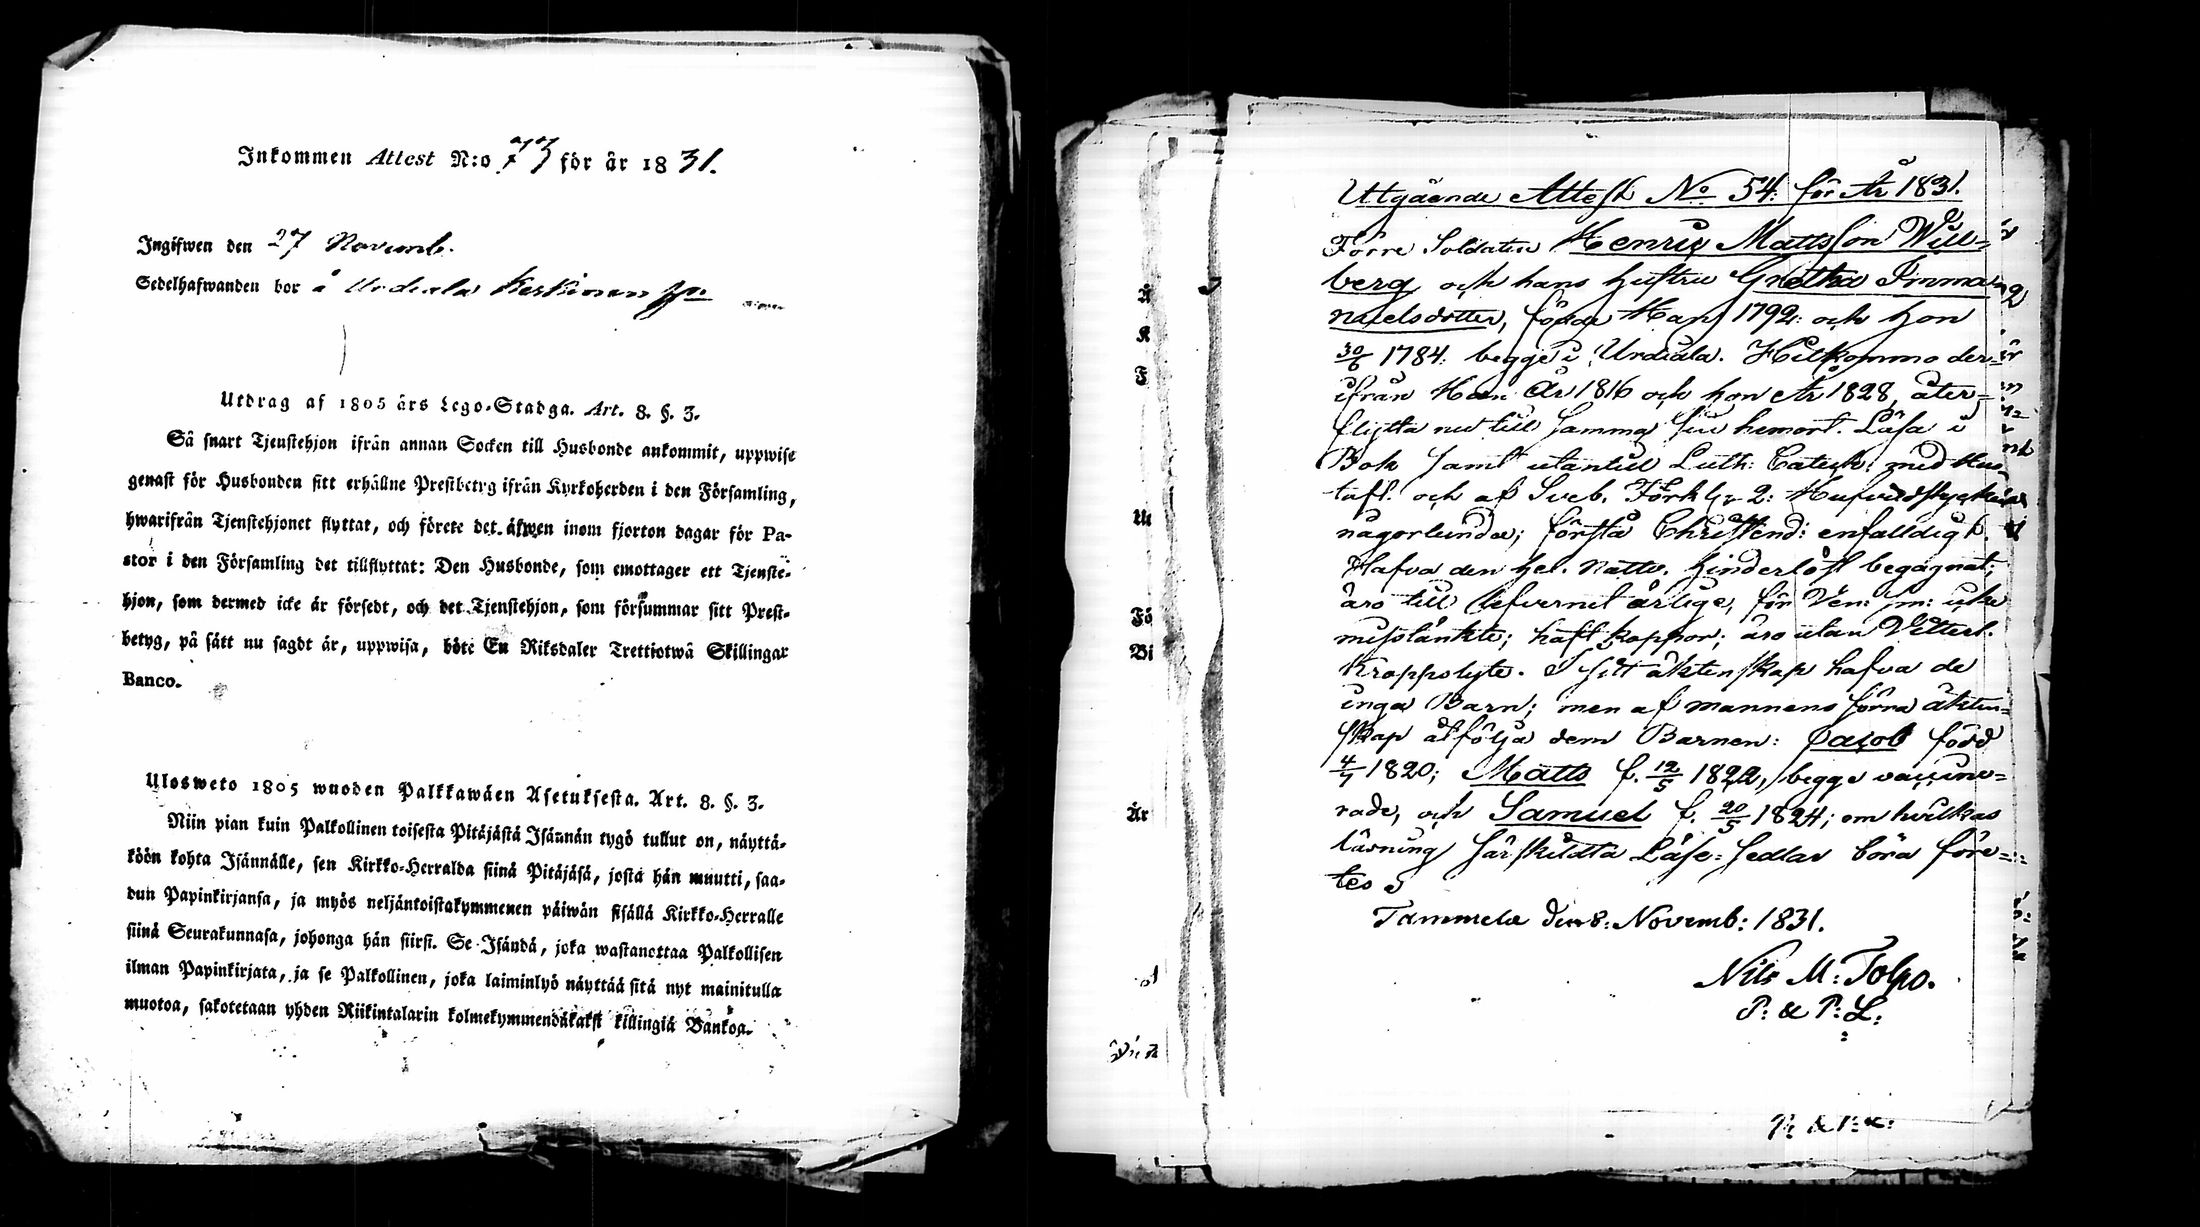 Inkommen Attest N:o 73 för år 1831.
Ingifwen den 27 Novemb.
Sedelhafwanden bor å Urdiala Kerkinen
Utdrag af 1805 års Lego-Stadga. Art. 8. §. 3.
Så snart Tjenstehjon ifrån annan Socken till Husbonde ankommit, uppwise
genast för Husbonden sitt erhållne Prestbetyg ifrån Kyrkoherden i den Församling,
hwarifrån Tjenstehjonet flyttat, och förete det äfwen inom fjorton dagar för Pa-
stor i den Församling det tillflyttat: Den Husbonde, som emottager ett Tjenste-
hjon, som dermed icke är försedt, och det Tjenstehjon, som försummar sitt Prest-
betyg, på sätt nu sagdt är, uppwisa, böte En Riksdaler Trettiotwå Skillingar
Banco.
Ulosweto 1805 wuoden Palkkawäen Asetuksesta. Art. 8. §. 3.
Niin pian kuin Palkollinen toisesta Pitäjästä Isännän tygö tullut on, näyttä-
köön kohta Isännälle, sen Kirkko-Herralda siinä Pitäjäsä, josta hän muutti, saa-
dun Papinkirjansa, ja myös neljäntoistakymmenen päiwän sisällä Kirkko-Herralle
siinä Seurakunnasa, johonga hän siirsi. Se Isändä, joka wastanottaa Palkollisen
ilman Papinkirjata, ja se Palkollinen, joka laiminlyö näyttää sitä nyt mainitulla
muotoa, sakotetaan yhden Riikintalarin kolmekymmendäkaksi killingiä Bankoa.
Utgående Attest No 54: för År 1831.
Förre Soldaten Henric Mattsson Will=
berg och hans hustru Gretha Imma
nuelsdotter, födde Han 1792: och hon
30/6 1784: begge i Urdiala. Hitkommo der=
ifrån Han År 1816 och hon År 1828, åter=
flytta nu till samma sin hemort. Läsa i
Bok samt utantill Luth: Catech: med Hus
tafl: och af Sveb. Förkl: 2: Hufvudstycken
någorlunda; förstå Christend: enfalldigt.
Hafva den Hel. Nattv. hinderlöst begagnat;
äro till lefvernet ärlige, för Ven: sm: icke
misstänkte; haft koppor; äro utan Vitterl.
Kroppslyte. I sitt äktenskap hafva de
inga Barn; men af mannens förra äkten=
skap åtfölja dem Barnen: Jacob född
4/7 1820; Matts f. 12/5 1822, begge vaccine=
rade, och Samuel f. 20/5 1824; om hvilkas
läsning särskildta Läse=sedlar böra före=
tes
Tammela den 8: Novemb: 1831.
Nils M: Tolpo.
P: & P: L: